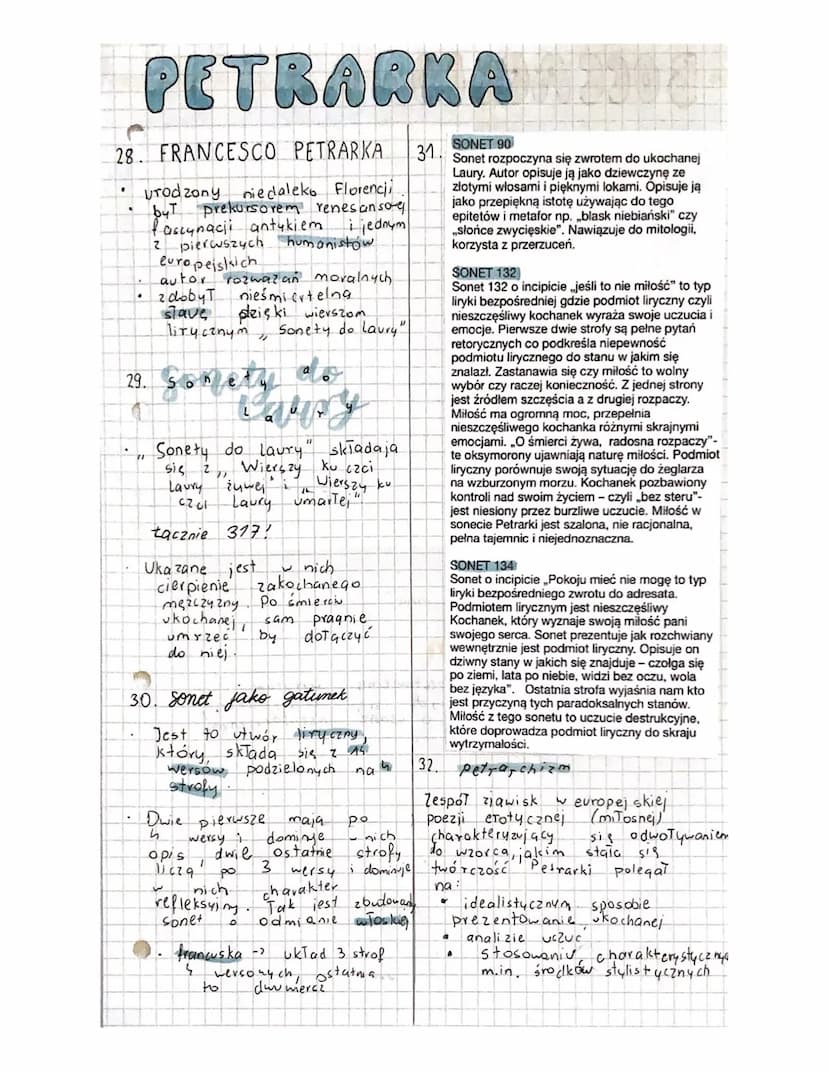 PETRARKA
28. FRANCESCO PETRARKA
• urodzony niedaleko Florencji
• był prekursorem renesansowej
fascynacji antykiem i jednym
z pierwszych humanistów
europejskich
• autor rozważań moralnych
• zdobył nieśmiertelną
sławę dzięki wierszom
lirycznym „Sonety do Laury"
29. Sonety do
Laury
• „Sonety do Laury" składają
się z „Wierszy ku czci
Laury żywej" i „Wierszy ku
czci Laury umarłej".
Łącznie 317!
• Ukazane jest w nich
cierpienie zakochanego
mężczyzny. Po śmierci
ukochanej, sam pragnie
umrzeć by dołączyć
do niej.
30. Sonet jako gatunek
• Jest to utwór liryczny,
który składa się z 14
wersów podzielonych na 4
strofy.
• Dwie pierwsze mają po
4 wersy i dominuje w nich
opis, dwie ostatnie strofy
liczą po 3 wersy i dominuje
w nich charakter
refleksyjny. Tak jest zbudowany
sonet o odmianie włoskiej
• francuska -> układ 3 strof
4 wersowych, ostatnia
to dwuwiersz
31. SONET 90
Sonet rozpoczyna się zwrotem do ukochanej
Laury. Autor opisuje ją jako dziewczynę ze
złotymi włosami i pięknymi lokami. Opisuje ją
jako przepiękną istotę używając do tego
epitetów i metafor np. „blask niebiański" czy
„słońce zwycięskie". Nawiązuje do mitologii,
korzysta z przerzuceń.
SONET 132
Sonet 132 o incipicie „jeśli to nie miłość" to typ
liryki bezpośredniej gdzie podmiot liryczny czyli
nieszczęśliwy kochanek wyraża swoje uczucia i
emocje. Pierwsze dwie strofy są pełne pytań
retorycznych co podkreśla niepewność
podmiotu lirycznego do stanu w jakim się
znalazł. Zastanawia się czy miłość to wolny
wybór czy raczej konieczność. Z jednej strony
jest źródłem szczęścia a z drugiej rozpaczy.
Miłość ma ogromną moc, przepełnia
nieszczęśliwego kochanka różnymi skrajnymi
emocjami. „O śmierci żywa, radosna rozpaczy"-
te oksymorony ujawniają naturę miłości. Podmiot
liryczny porównuje swoją sytuację do żeglarza
na wzburzonym morzu. Kochanek pozbawiony
kontroli nad swoim życiem – czyli „bez steru"-
jest niesiony przez burzliwe uczucie. Miłość w
sonecie Petrarki jest szalona, nie racjonalna,
pełna tajemnic i niejednoznaczna.
SONET 134
Sonet o incipicie „Pokoju mieć nie mogę to typ
liryki bezpośredniego zwrotu do adresata.
Podmiotem lirycznym jest nieszczęśliwy
Kochanek, który wyznaje swoją miłość pani
swojego serca. Sonet prezentuje jak rozchwiany
wewnętrznie jest podmiot liryczny. Opisuje on
dziwny stany w jakich się znajduje – czołga się
po ziemi, lata po niebie, widzi bez oczu, woła
bez języka". Ostatnia strofa wyjaśnia nam kto
jest przyczyną tych paradoksalnych stanów.
Miłość z tego sonetu to uczucie destrukcyjne,
które doprowadza podmiot liryczny do skraju
wytrzymałości.
32. petrarchizm
Zespół zjawisk w europejskiej
poezji erotycznej (miłosnej)
charakteryzujący się odwoływaniem
do wzorca, jakim stała się
twórczość Petrarki polegał
na:
• idealistycznym sposobie
prezentowanie ukochanej
• analizie uczuć
• stosowaniu charakterystyczny
m.in. środków stylistycznych